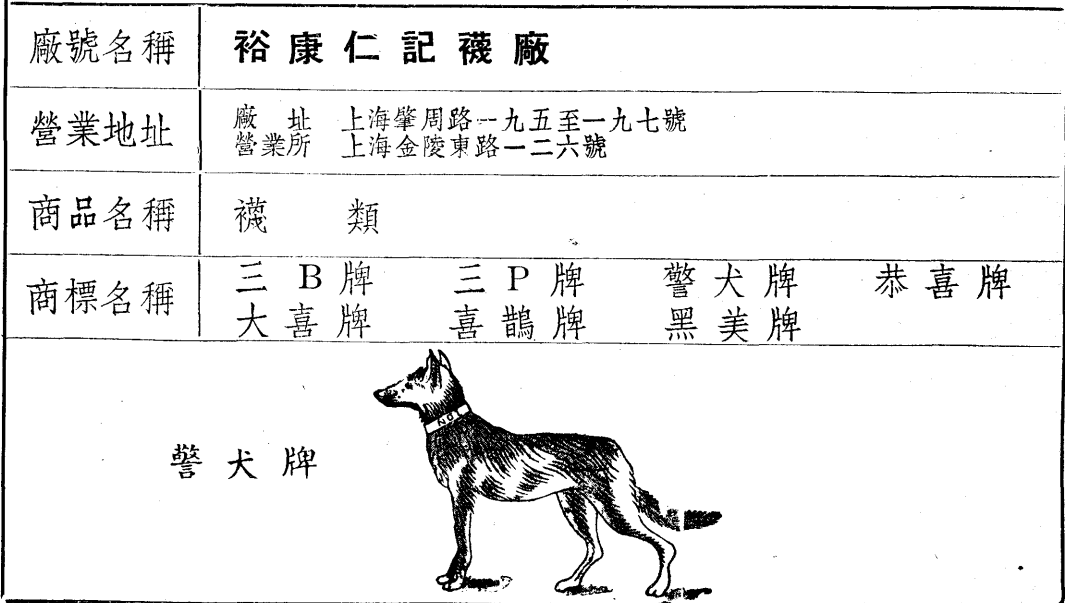 廠號名稱 裕康仁記襪廠
營業地址 廠址 上海肇周路一九五至一九七號
營業所 上海金陵東路一二六號
商品名稱 襪類
商標名稱 三B牌 三P牌 警犬牌 恭喜牌
大喜牌 喜鵲牌 黑美牌
警犬牌
NO